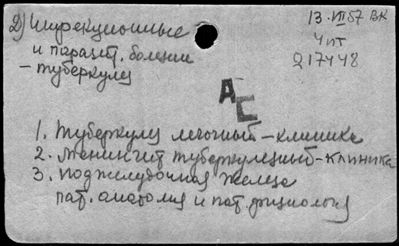 2) Инфекционные
и паразит. болезни
- туберкулез
13. VII 57 ВК
4 пт
217448
АЕ
1. Туберкулез легочный - клиника
2. Менингит туберкулезный - клиника
3. Поджелудочная железа
пат. анатомия и пат. физиология